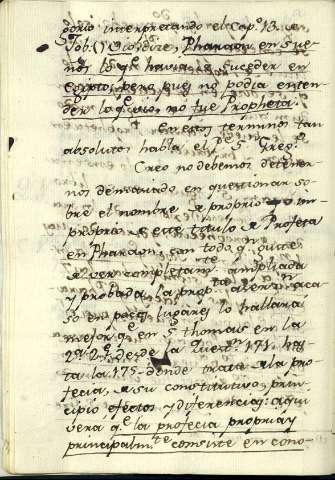 gorio interpretando el Cap.º 13. de
Job. () Vio, dice, Pharaon en sue-
ños lo q.e havia de suceder en
egipto; pero pues no podia enten-
der lo q.e vio, no fue Propheta.
En estos terminos tan
absolutos habla el P.e S. Greg.º
Creo no debemos detener-
nos demasiado en questionar so-
bre el nombre de proprio o im-
proprio de este titulo de Profeta
en Pharaon; con todo q.n guste
de ver completam.te ampliada
y probada la prop. aca-
so en pocos lugares lo hallara
mejor q.e en S. Thomas en la
2.a 2.e desde la Quest. 171. has-
ta la 175. donde trata de la pro-
fecia, de su constitutivo, prin-
cipio efectos y diferencias: aqui
vera q.e la profecia propria y
principalm.te consiste en cono-